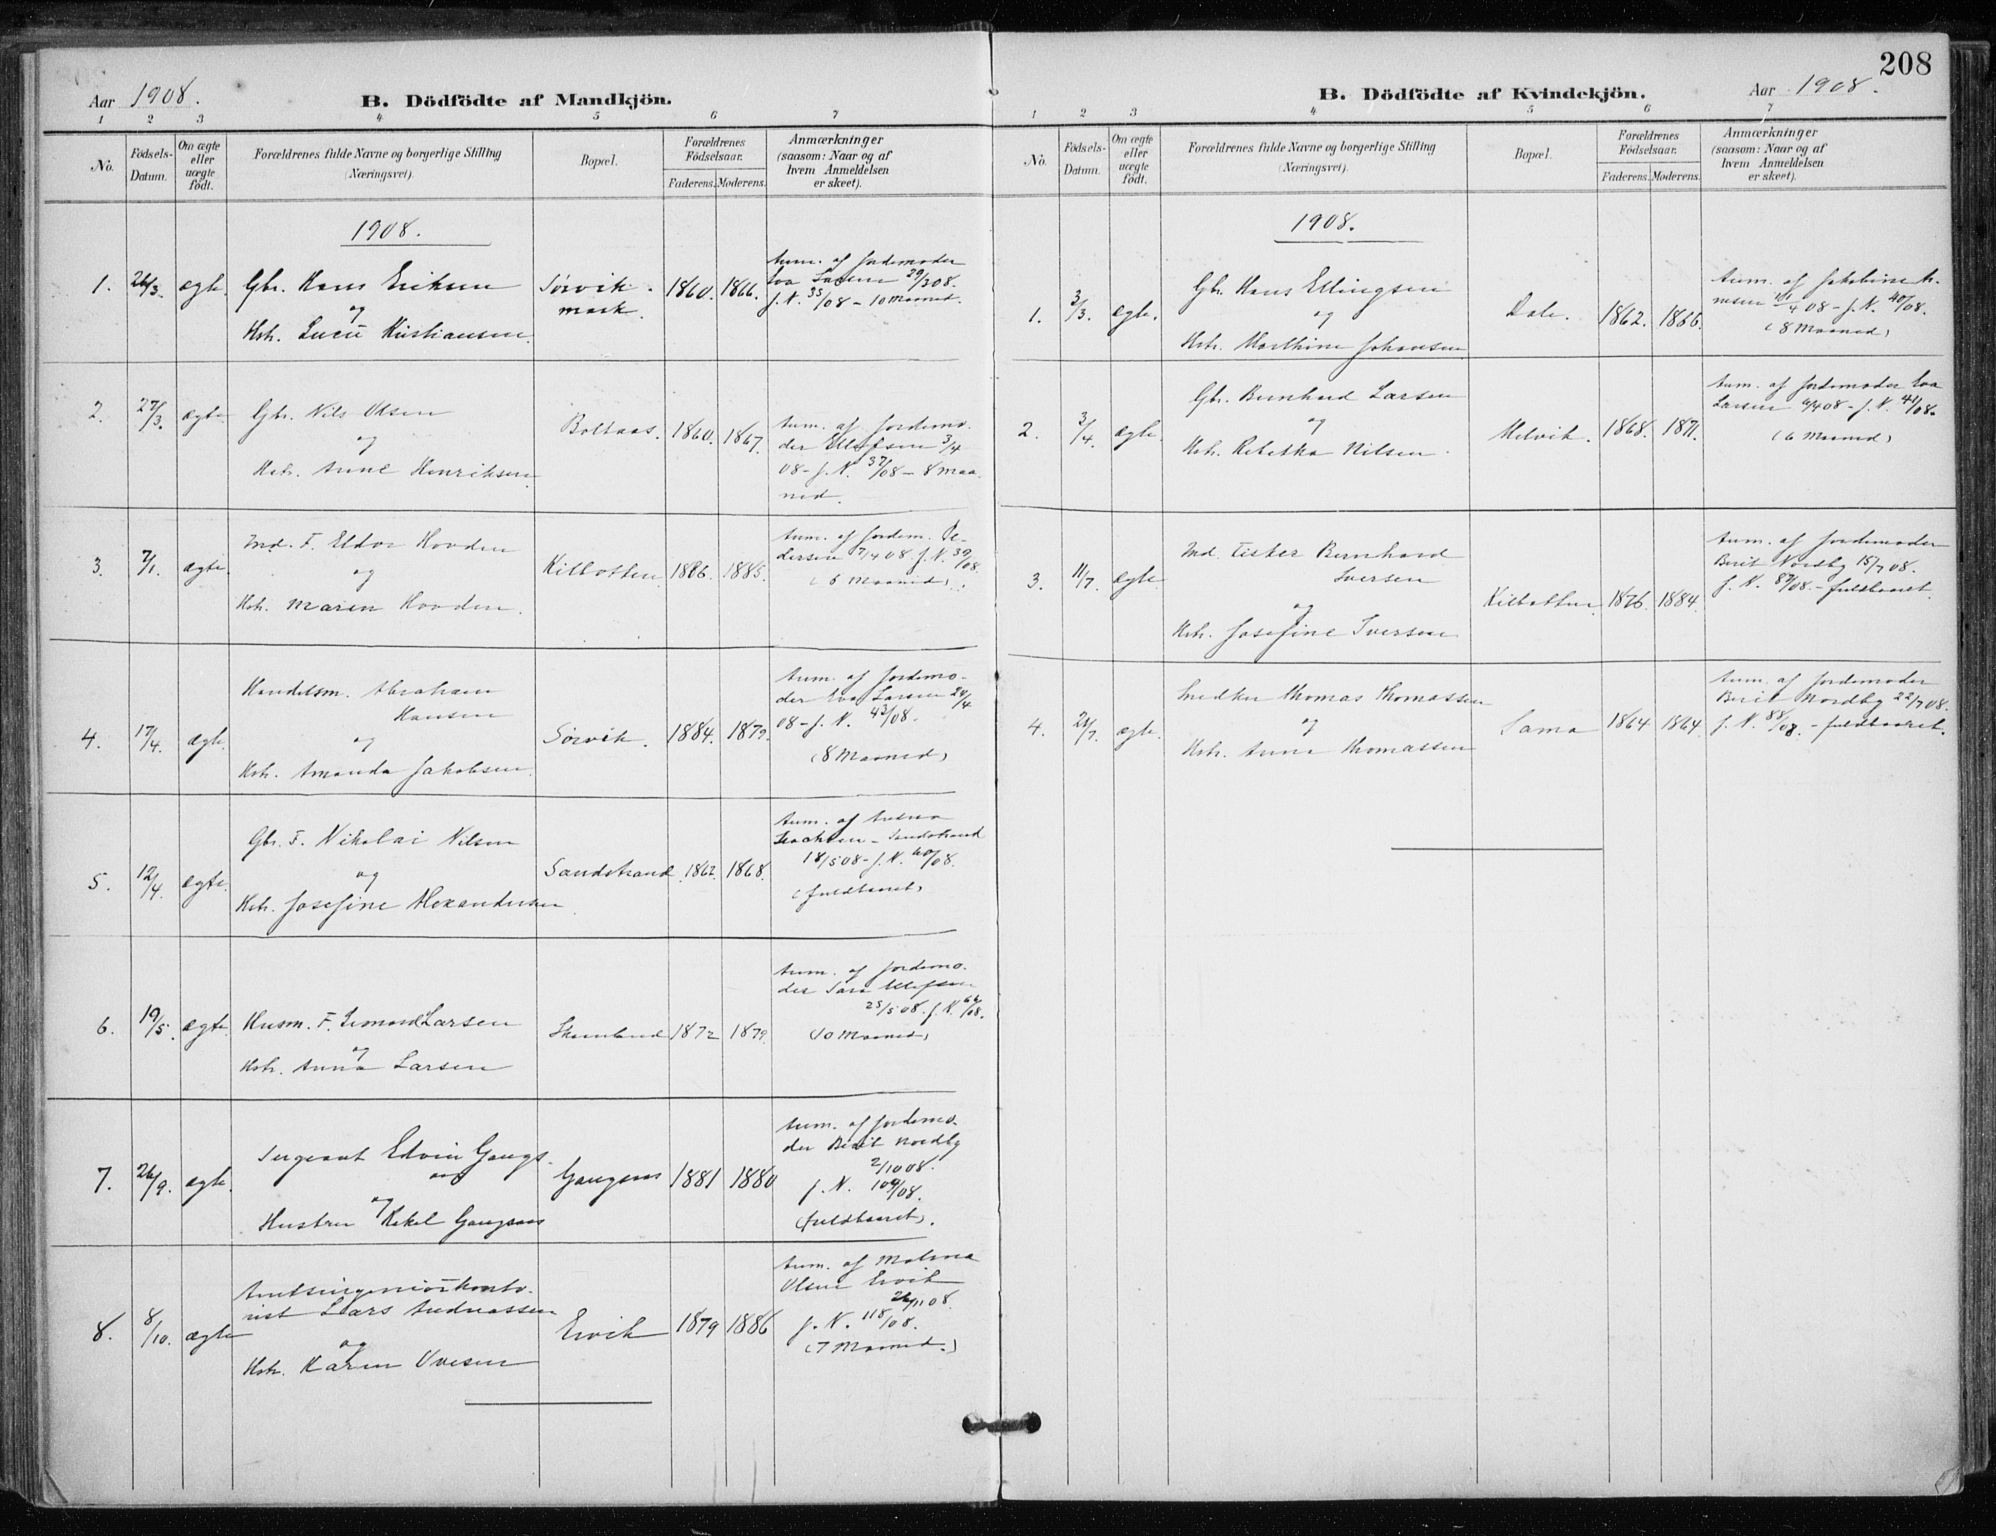 208
Aar 1908.
B. Dödfödte af Mandkjön.
1 2 3 4 5 6 7
No.
Födsels-Datum.
Om ægte eller uægte födt.
Forældrenes fulde Navne og borgerlige Stilling
(Næringsvei).
Bopæl.
Forældrenes Födselsaar.
Faderens. Moderens.
Anmærkninger
(saasom: Naar og af
hvem Anmeldelsen
er skeet).
1908.
1. 26/3. ægte. Gbr. Hans Eriksen
og
Hstr. Lucie Kristiansen
Sørvik-
mark.
1860. 1866.
Anm. af Jordemoder
Eva Larsen 29/3 08.
J. N. 33/08 - 10 Maaned.
2. 27/3. ægte Gbr. Nils Olsen
og
Hstr. Anne Henriksen
Boltaas. 1860. 1867.
Anm. af Jordemo-
der Ellefsen 3/4
08 - J. N. 37/08 - 8 Maa-
ned.
3. 7/1. ægte. Ind. F. Eldor Hovden
og
Hstr. Maren Hovden.
Kilbotten 1886. 1885.
Anm. af Jordem. Pe-
dersen 7/4 08. J. N. 39/08.
(6 Maaned).
4. 17/4. ægte. Handelsm. Abraham
Hansen
og
Hstr. Amanda Jakobsen.
Sørvik. 1884. 1879.
Anm. af Jordemo-
der Eva Larsen 20/4
08 - J. N. 43/08.
(8 Maaned)
5. 12/4. ægte. Gbr. F. Nikolai Nilsen
og
Hstr. Josefine Alexandersen
Sandstrand 1862. 1868.
Anm. af Andrea
Isachsen - Sandstrand
18/5 08 - J. N. 60/08.
(fuldbaaret)
6. 19/5. ægte Husm. F. Edvard Larsen
og
Hstr. Anna Larsen
Skaanland 1872 1879.
Anm. af Jordemo-
der Sara Ellefsen
25/5 08. J. N. 66/08.
(10 Maaned)
7. 26/9. ægte. Sergeant Edvin Gangs-
aas
og
Hustru Rakel Gangsaas
Gangsaas 1881 1880
Anm. af Jordemo-
der Berit Nordby
2/10 08.
J. N. 109/08.
(fuldbaaret).
8. 8/10. ægte Amtsingeniörkonto-
rist Lars Andreassen
og
Hstr. Karen Ovesen
Ervik 1879 1886
Anm. af Malena
Olsen Ervik
26/11 08.
J. N. 118/08.
(7 Maaned.)
B. Dödfödte af Kvindekjön.
Aar 1908.
1 2 3 4 5 6 7
No.
Födsels-Datum.
Om ægte eller uægte födt.
Forældrenes fulde Navne og borgerlige Stilling
(Næringsvei).
Bopæl.
Forældrenes Födselsaar.
Faderens. Moderens.
Anmærkninger
(saasom: Naar og af
hvem Anmeldelsen
er skeet).
1908.
1. 3/3. ægte. Gbr. Hans Ellingsen
og
Hstr. Marthine Johansen
Dale. 1862. 1866.
Anm. af Jakobine
/4 08 - J. N. 40/08.
(8 Maaned)
2. 3/4. ægte. Gbr. Bernhard Larsen
og
Hstr. Rebekka Nilsen.
Melvik. 1868. 1871.
Anm. af Jordemoder Eva
Larsen 6/4 08 - J. N. 41/08.
(6 Maaned)
3. 11/7. ægte Ind. Fisker Bernhard
Iversen
og
Hstr. Josefine Iversen
Kilbotten. 1876. 1884.
Anm. af Jordemoder
Berit Nordby 15/7 08.
J. N. 87/08. - fuldbaaret.
4. 21/7. ægte. Snedker Thomas Thomassen
og
Hstr. Anna Thomassen
Sama 1864 1864
Anm. af Jordemoder
Berit Nordby 22/7 08.
J. N. 88/08. - fuldbaaret.